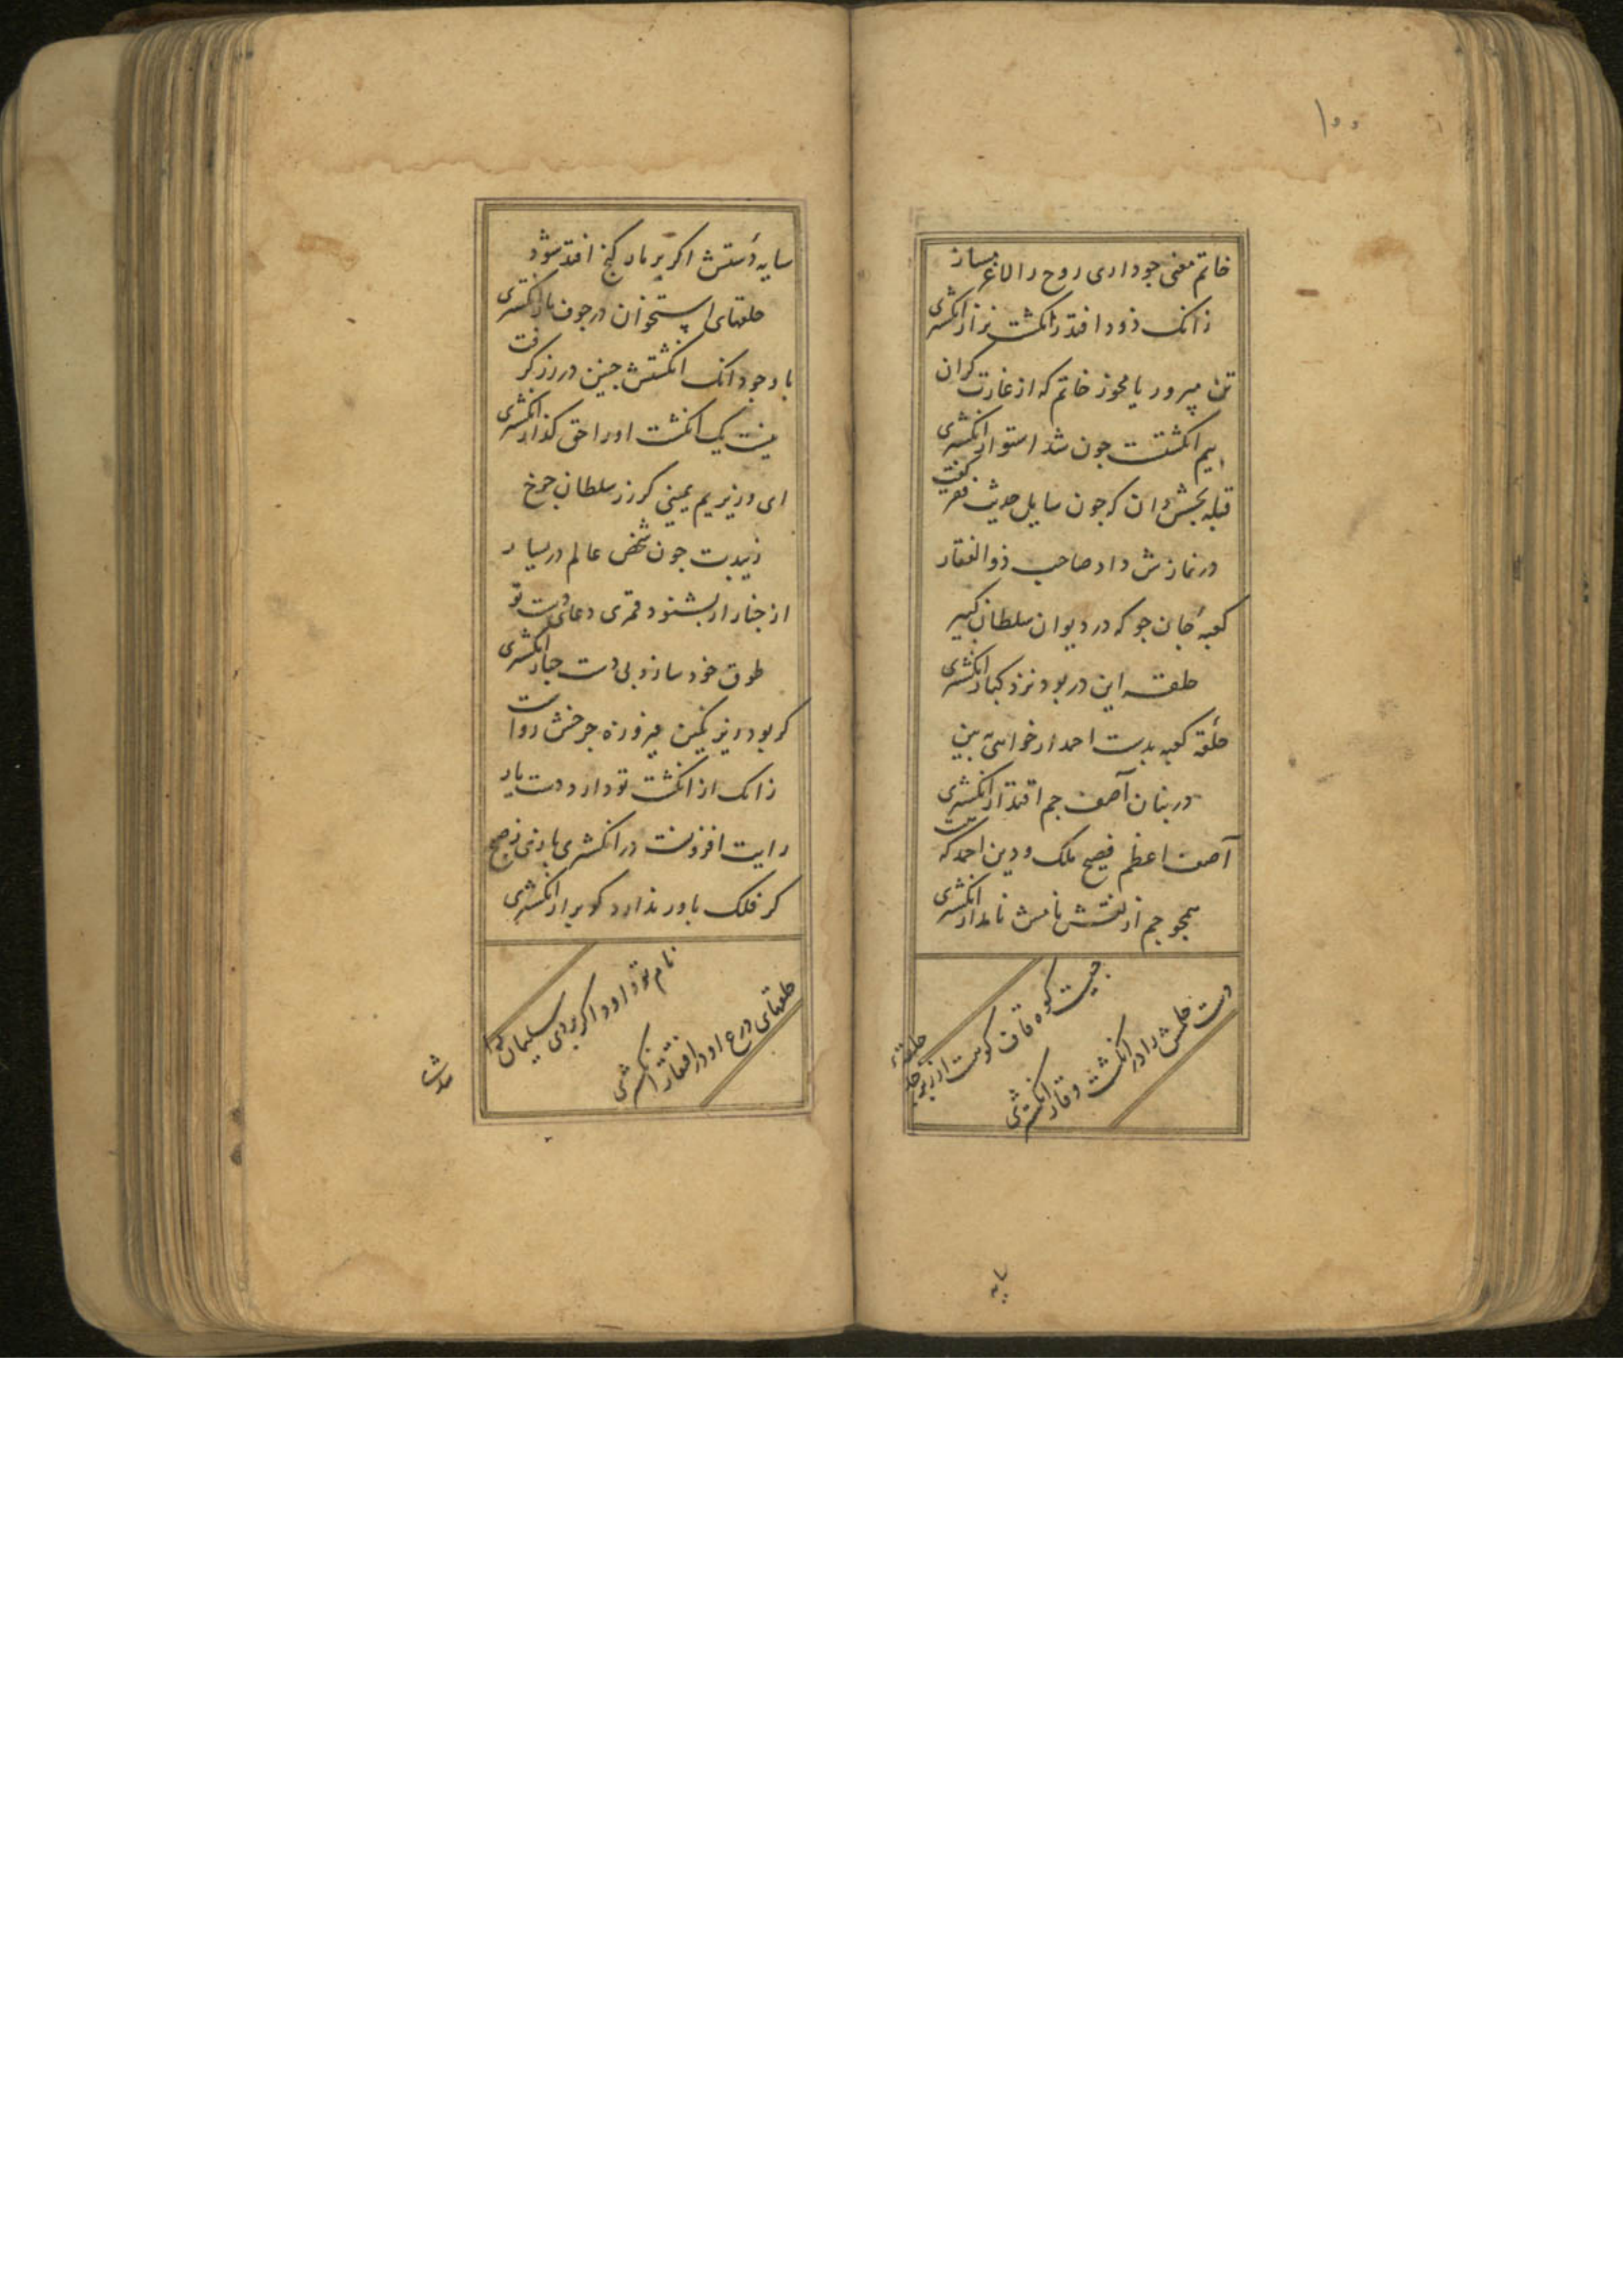 ۱۰۰
خاتم معنی جو داری روح را لاغر مساز
زانک زود افتد ز انکشت نزار انکشتری
تن مپرور یا مجوز خاتم که از غارت کران
بیم انکشتست جون شد استوار انکشتری
قبله بخشش دان که جون سایل حدیث فقر گفت
در نمازش داد صاحب ذوالفقار
کعبهٔ جان جو که در دیوان سلطان کبیر
حلقه این در بود نزد کبار انکشتری
حلقهٔ کعبه بدست احمد ار خواهی ببین
در بنان آصف جم اقتدار انکشتری
آصف اعظم فصیح ملک و دین احمد که
همجو جم از نقش نامش نامدار انکشتری
جیست کوه قاف کویست از زبرجد حلقهٔ
دست حلمش را در انکشت وقار انکشتری
سایه
سایه دستش اکر بر مار کنج افتد شود
حلقهای استخوان در جوف مار انکشتری
با وجود انک انکشتش جنین در زر کرفت
نیست یک انکشت او را حق کذار انکشتری
ای وزیر یم یمینی کز زر سلطان جرخ
زیبدت جون شخص عالم در یسار
از جنار ار بشنود قمری دعای دست تو
طوق خود سازد بی دست جنار انکشتری
کر بود در زیر نکین فیروزه جرخش رواست
زانک از انکشت تو دارد دست یار
رایت افزونست در انکشتری بازی ز صبح
کر فلک باور ندارد کو برار انکشتری
نام تو داود اکر بردی سلیمان
حلقهای درع او در افتقار انکشتری